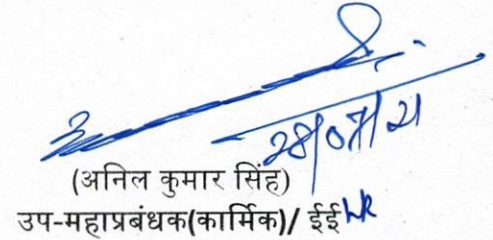 28/07/21
(अनिल कुमार सिंह)
उप-महाप्रबंधक(कार्मिक)/ ईई